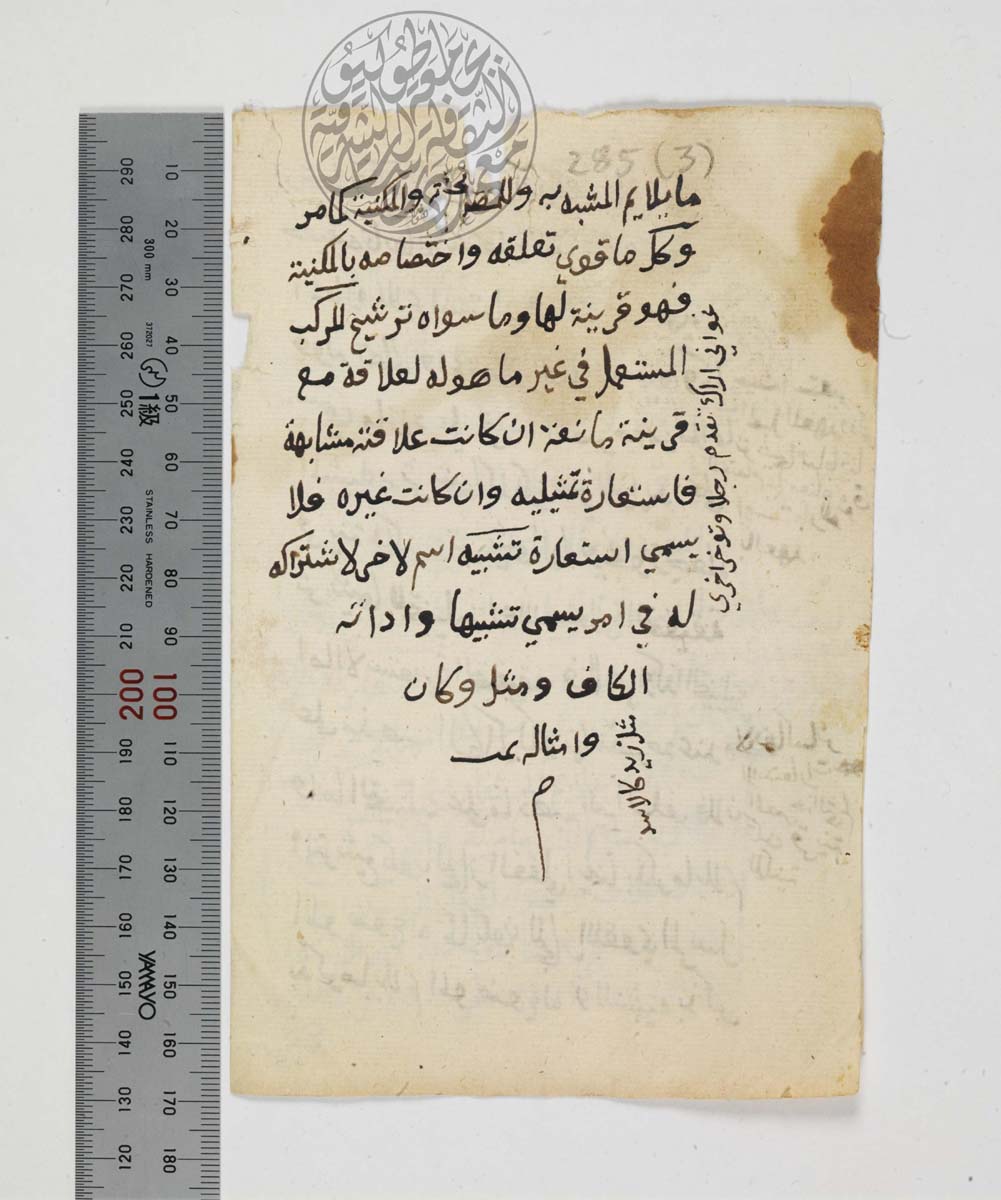 285 (3)
ما يلايم المشبه به وللمصرحة والمكنية كما مر
وكل ما قوي تعلقه واختصاصه بالمكنية
فهو قرينة لها وما سواه ترشيح المركب
المستعمل في غير ما هو له لعلاقة مع
قرينة مانعة ان كانت علاقته مشابهة
فاستعارة تمثيليه وان كانت غيره فلا
يسمي استعارة تشبيه اسم لاخر لاشتراكه
له في امر يسمي تشبيها واداته
الكاف ومثل وكان
وامثاله تمت
م
نحو اني اراك تقدم رجلا وتوخر اخري
مثل زيد كالاسد
290 280 270 260 250 240 230 220 210 200 190 180 170 160 150 140 130 120
300 mm
372027
1級
STAINLESS HARDENED
YAMAYO
10 20 30 40 50 60 70 80 90 100 110 120 130 140 150 160 170 180